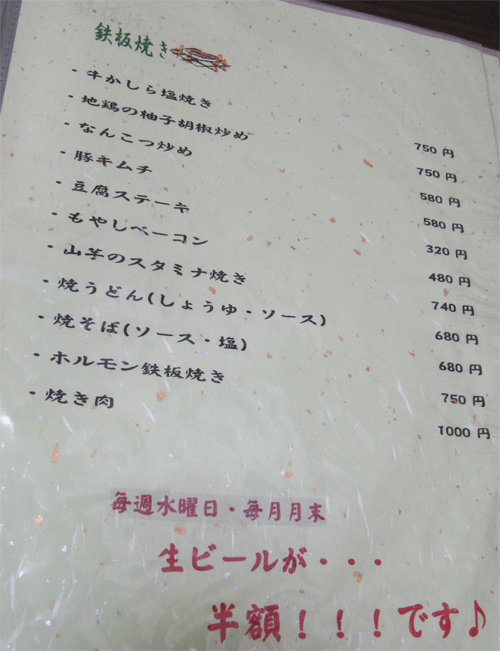 鉄板焼き
・牛かしら塩焼き 750 円
・地鶏の柚子胡椒炒め 750 円
・なんこつ炒め 580 円
・豚キムチ 580 円
・豆腐ステーキ 320 円
・もやしベーコン 480 円
・山芋のスタミナ焼き 740 円
・焼うどん(しょうゆ・ソース) 680 円
・焼そば(ソース・塩) 680 円
・ホルモン鉄板焼き 750 円
・焼き肉 1000 円
毎週水曜日・毎月月末
生ビールが・・・
半額！！！です♪